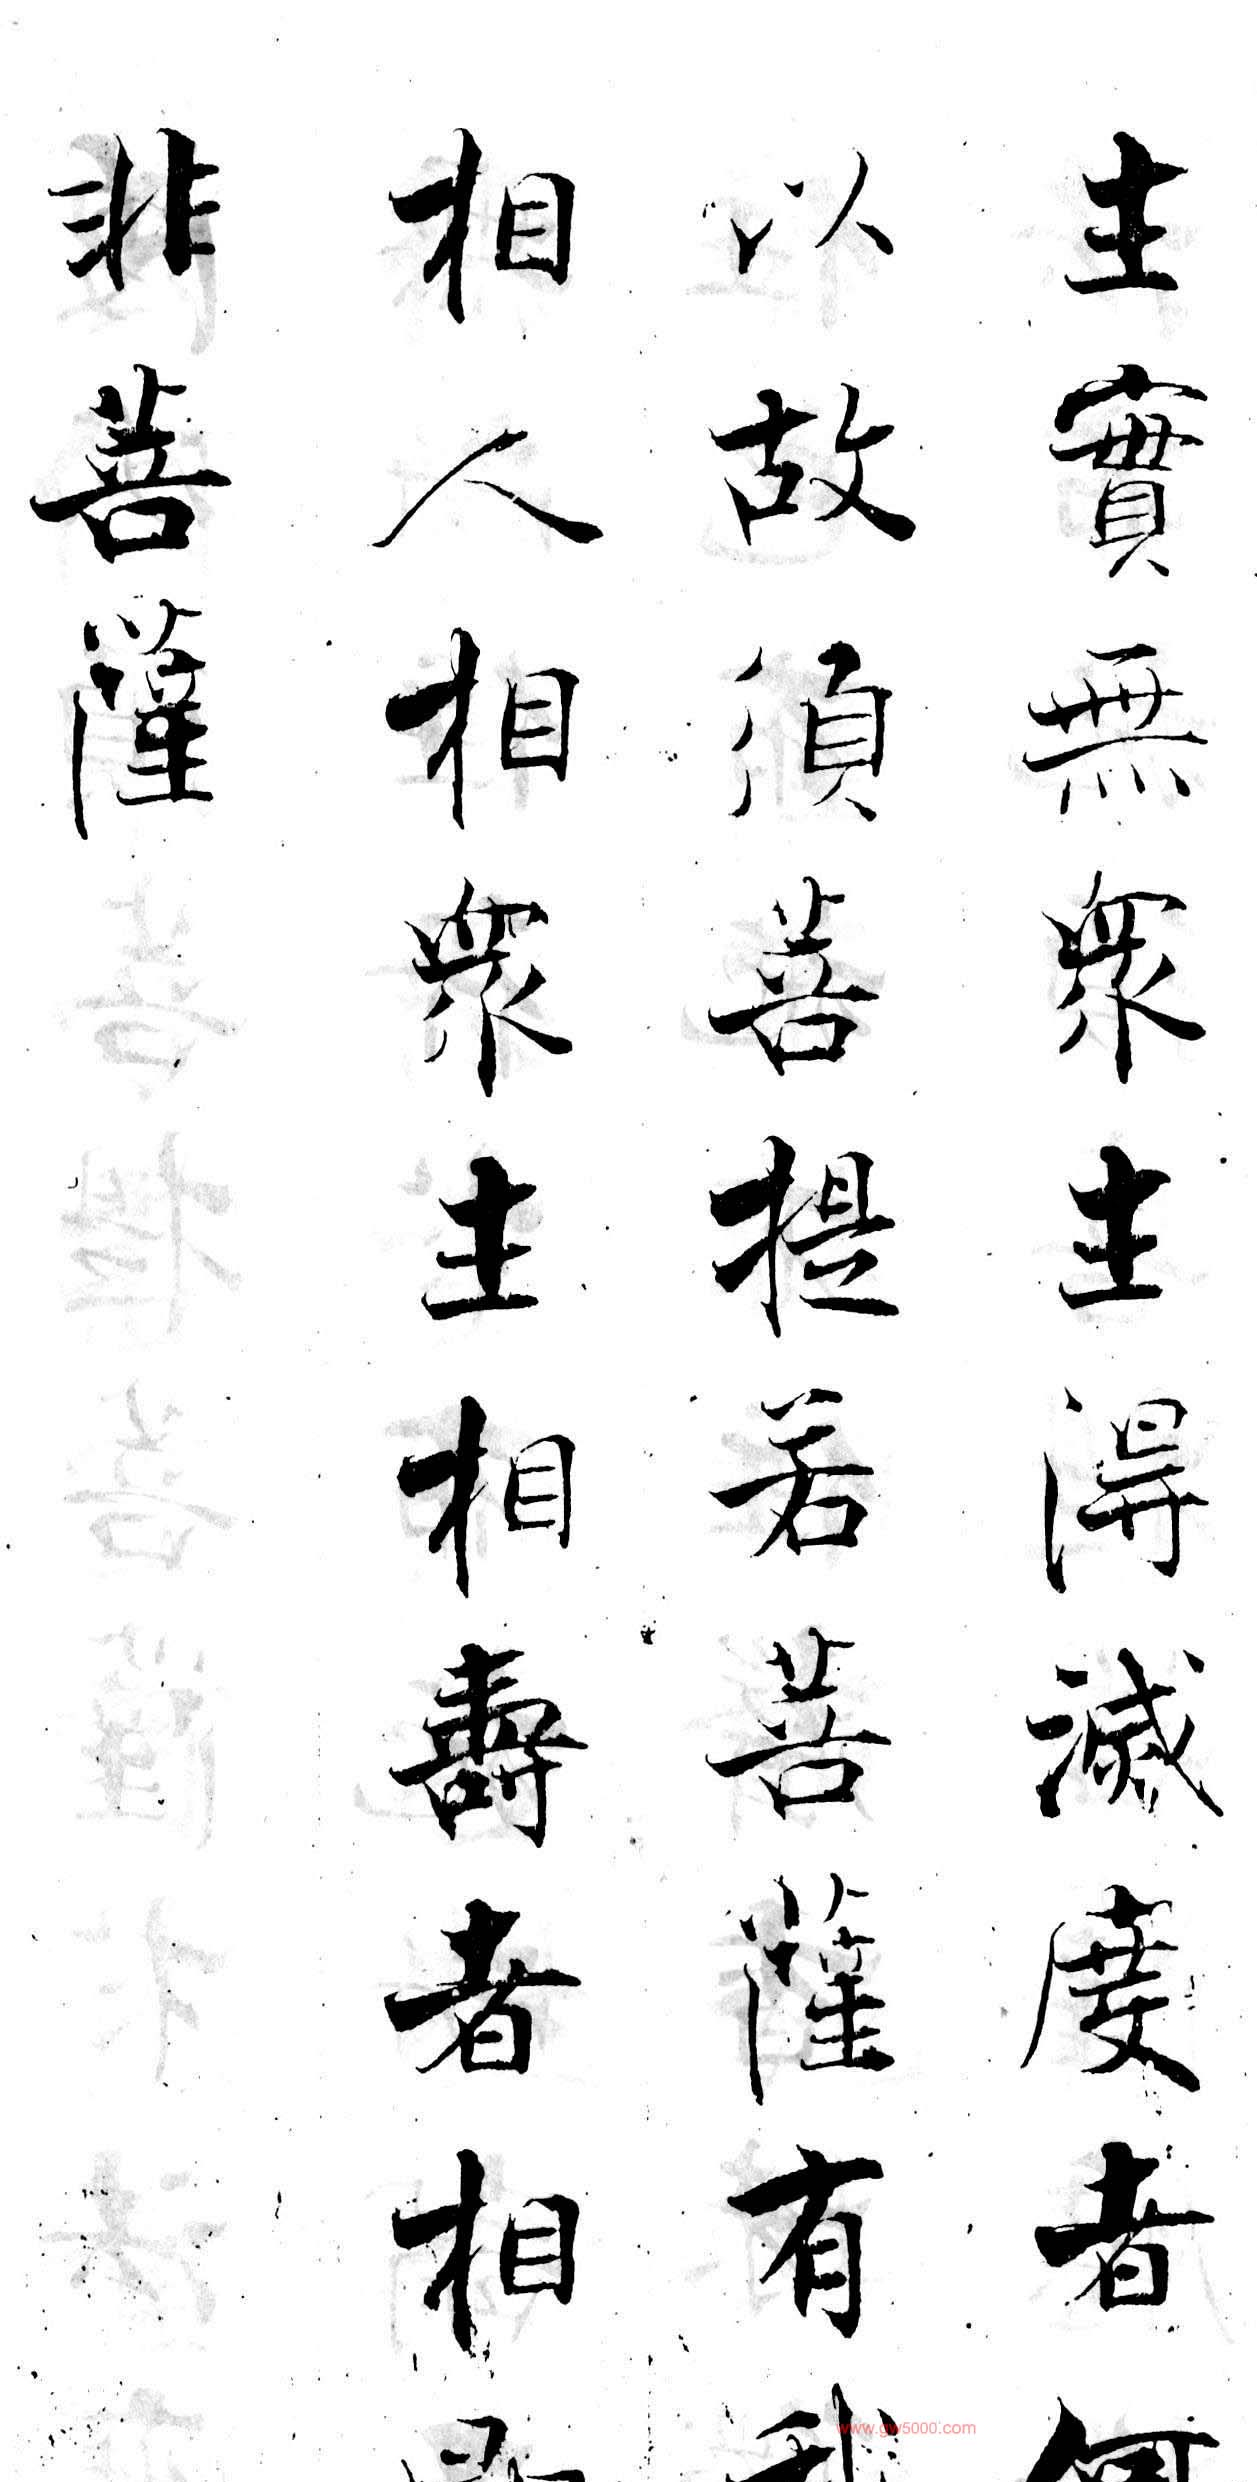 生實無衆生得滅度者何
以故須菩提若菩薩有我
相人相衆生相壽者相即
非菩薩
www.gw5000.com